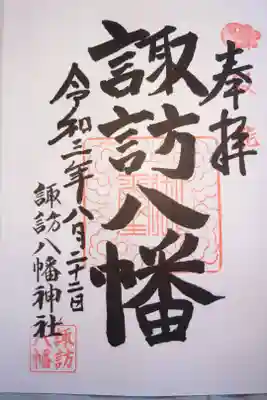 奉拝
諏訪八幡
令和三年八月二十二日
諏訪八幡神社
諏訪
八幡